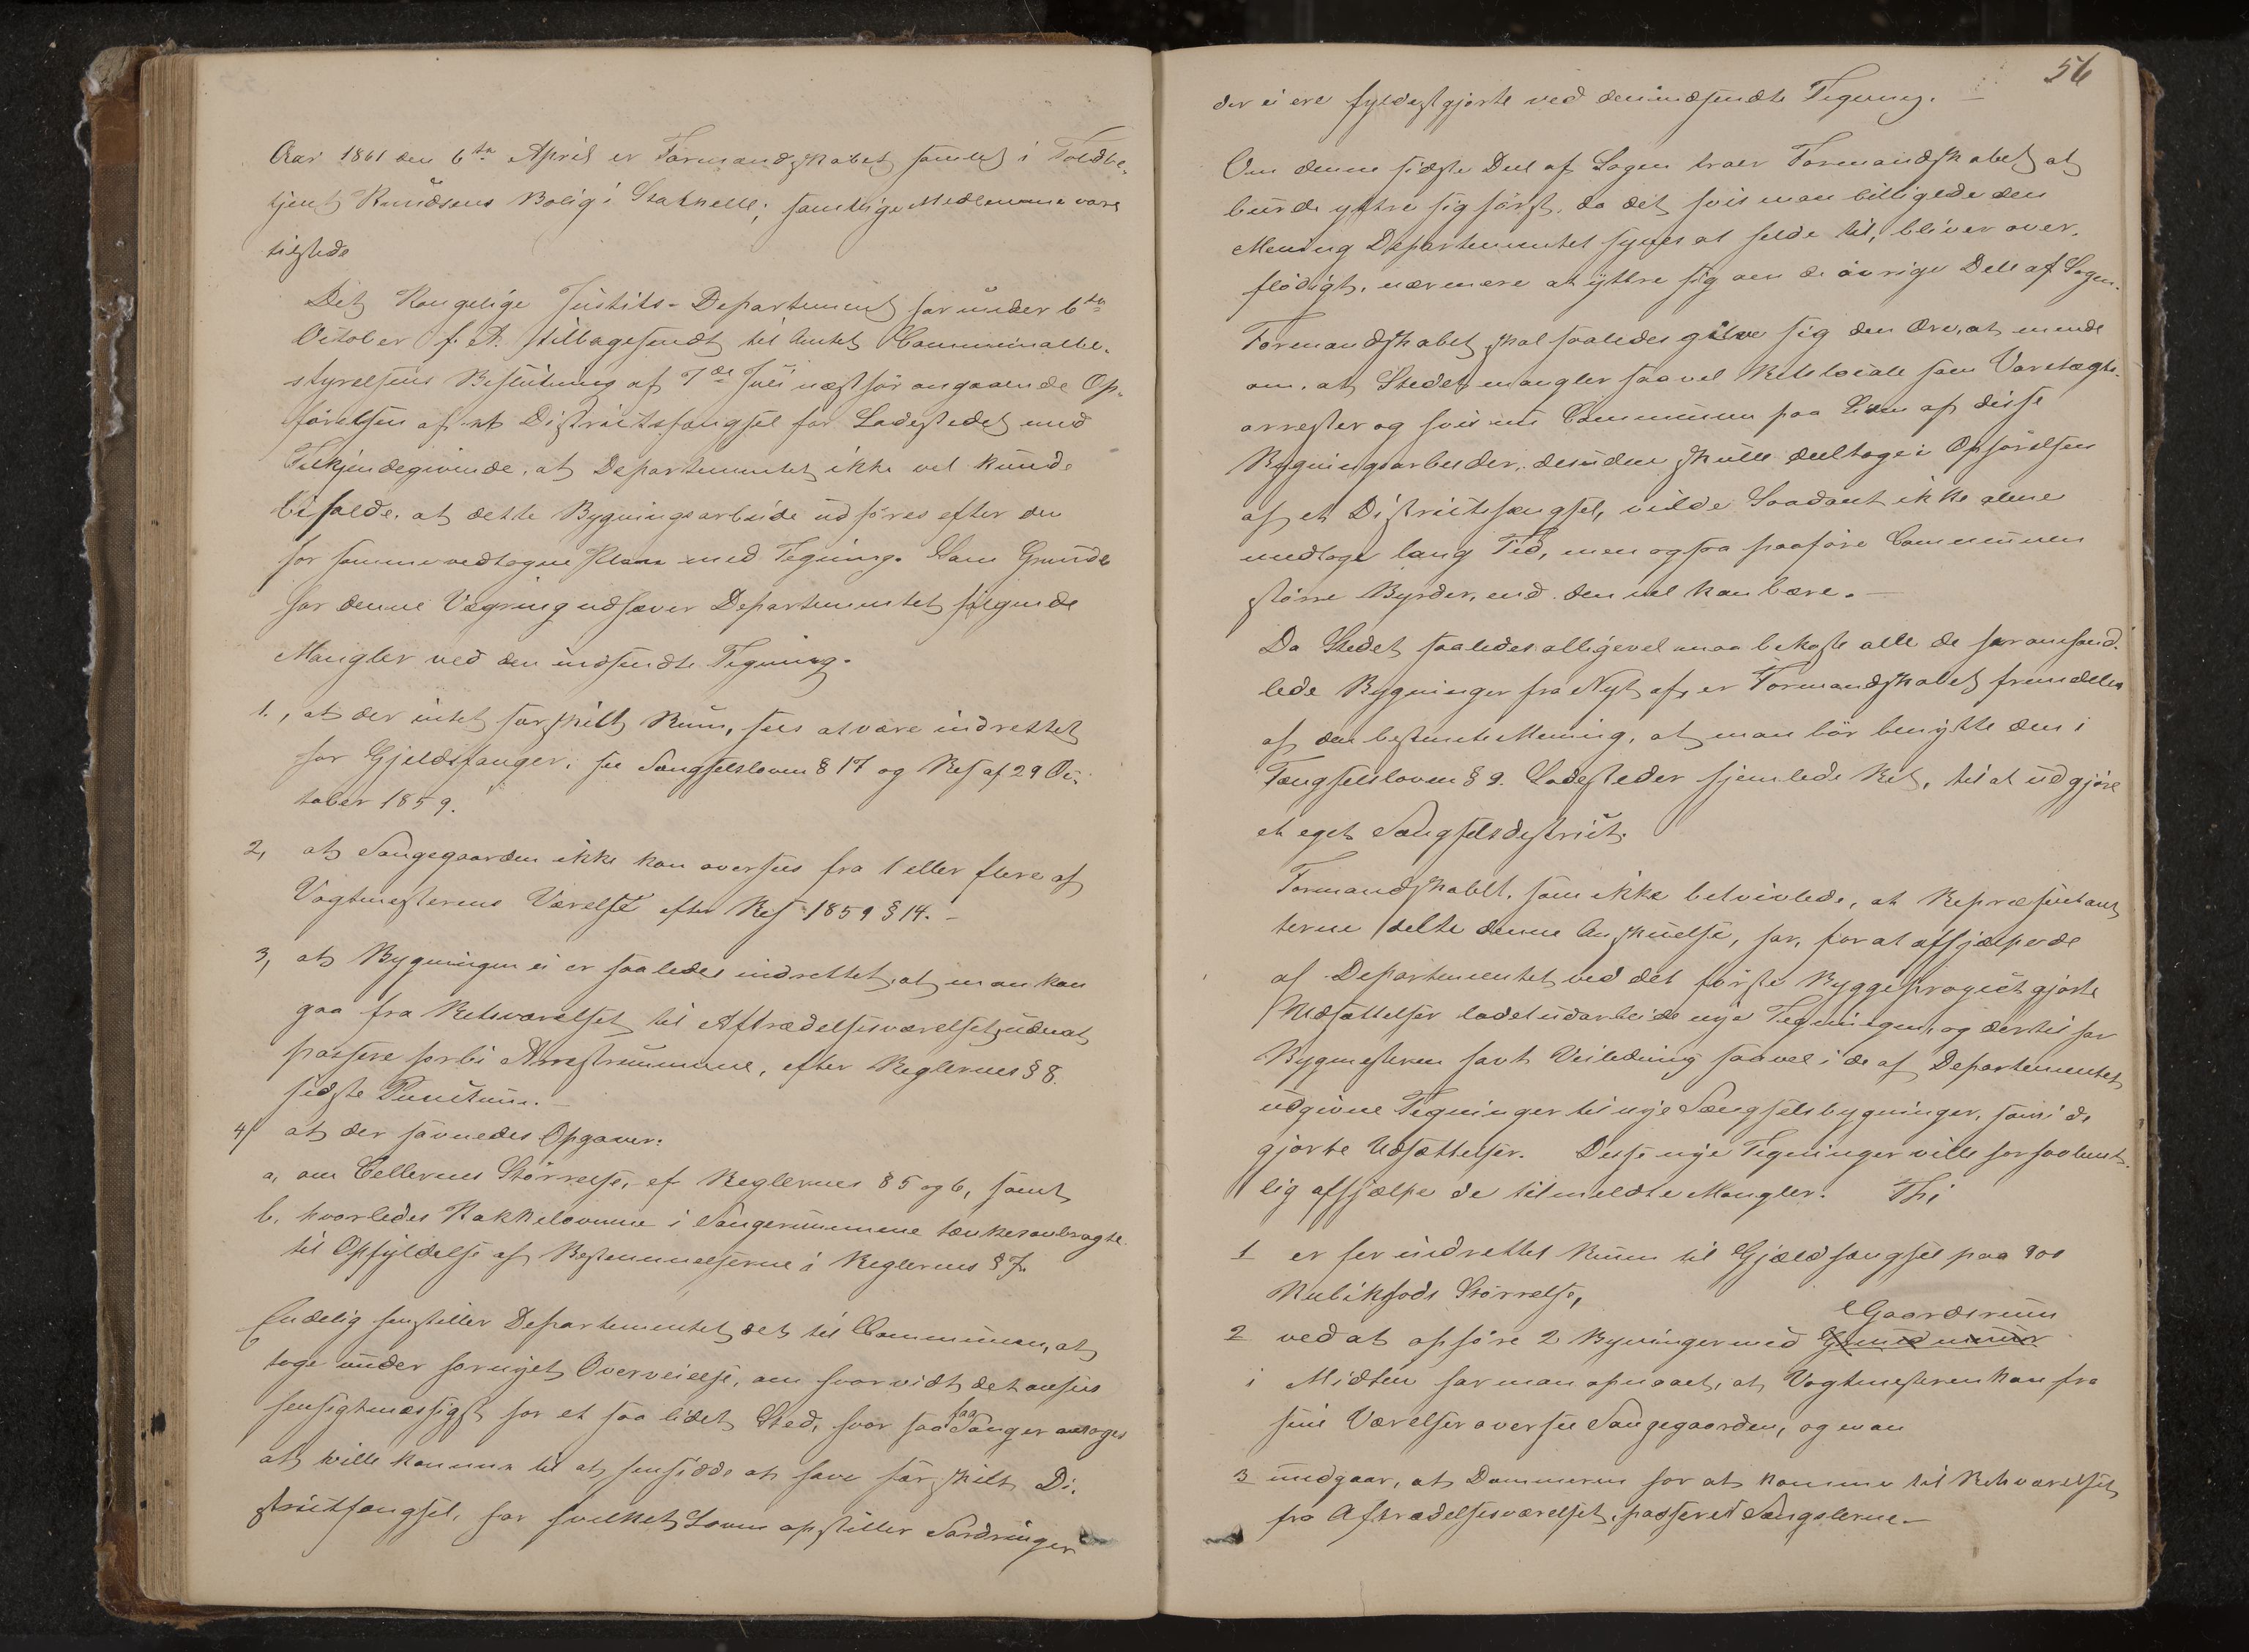 Aar 1861 den 6te April er Formandskabet samlet i Toldbe-
tjent Knudsens Bolig i Stathelle; samtlige Medlemmer vare
tilstede
Det Kongelige Justits-Departement har under 6te
October f. A. tilbagesendt til Communalbe-
styrelsens Beslutning af 7de Juli næstfør angaaende Op-
førelsen af et Districtsfængsel for Ladestedet med
Tilkjendegivende, at Departementet ikke vel kunde
bifalde, at dette Bygningsarbeide udføres efter den
for samme vedtagne Plan med Tegning. Som Grunde
for denne Vægring udhæver Departementet følgende
Mangler ved den indsendte Tegning.
1., at der intet særskilt Rum, sees at være indrettet
for Gjeldsfanger, see Fængselsloven § 17 og Res af 29 Oc-
tober 1859.
2, at Fangegaarden ikke kan oversees fra 1 eller flere af
Vagtmesterens Værelse efter Res 1859 § 14. -
3, at Bygningen ei er saaledes indrettet, at man kan
gaa fra Retsværelset til Aftrædelsesværelset, uden at
passere forbi Arrestrummene, efter Reglernes § 8.
sidste Punctum. -
4/ at der savnedes Opgaver:
a, om Cellernes Størrelse, cf Reglernes § 5 og 6, samt
b, hvorledes Kakkelovnene i Fangerummene tænkes anbragte
til Opfyldelse af Bestemmelserne i Reglernes § 7.
Endelig henstiller Departementet det til Communen, at
tage under fornyet Overveielse, om hvorvidt det ansees
hensigtmæssigst for et saa lidet Sted, hvor saa faa Fanger antages
at ville komme til at hensidde at have særskilt Di-
strictfængsel, for hvilket Loven opstiller Fordringer
56
der ei ere fyldestgjorte ved den indsendte Tegning. -
Om denne sidste Deel af Sagen troer Formandskabet at
burde yttre sig først, da det hvis man billigede den
Mening Departementet synes at helde til, bliver over-
flødigt, nærmere at yttre sig om de øvrige Dele af Sagen.
Formandskabet skal saaledes give sig den Ære, at melde
om, at Stedet mangler saavel Retslocale som Varetægts-
arrester og hvis nu Communen paa Siden af disse
Bygningsarbeider, desuden skulle deeltage i Opførelsen
af et Districtsfængsel, vilde Saadant ikke alene
medtage lang Tid, men ogsaa paaføre Communen
større Byrder, end den vel kan bære. -
Da Stedet saaledes alligevel maa bekoste alle de heromhand-
lede Bygninger fra Nyt af, er Formandskabet fremdeles
af den bestemte Mening, at man bør benytte den i
Fængselsloven § 9. Ladesteder hjemlede Ret, til at udgjøre
et eget Fængselsdistrict.
Formandskabet, som ikke betvivlede, at Repræsentant
terne delte denne Anskuelse, har, for at afhjælpe de
af Departementet ved det første Byggeproject gjorte
Udsættelser ladet udarbeide nye Tegninger, og dertil har
Bygmesteren havt Veiledning saavel i de af Departementet
udgivne Tegninger til nye Fængselsbygninger, som i de
gjorte Udsættelser. Disse nye Tegninger ville forhaabent-
lig afhjælpe de tilmeldte Mangler. Thi
1 er her indrettet Rum til Gjældsfængsel paa 900
Kubikfods Størrelse,
Gaardsrum
2 ved at opføre 2 Bygninger med
i Midten har man opnaaet, at Vagtmesteren kan fra
sine Værelser oversee Fangegaarden, og man
3 undgaar, at Dommeren for at komme til Retsværelset
fra Aftrædelsesværelset, passerer Fængslerne. -